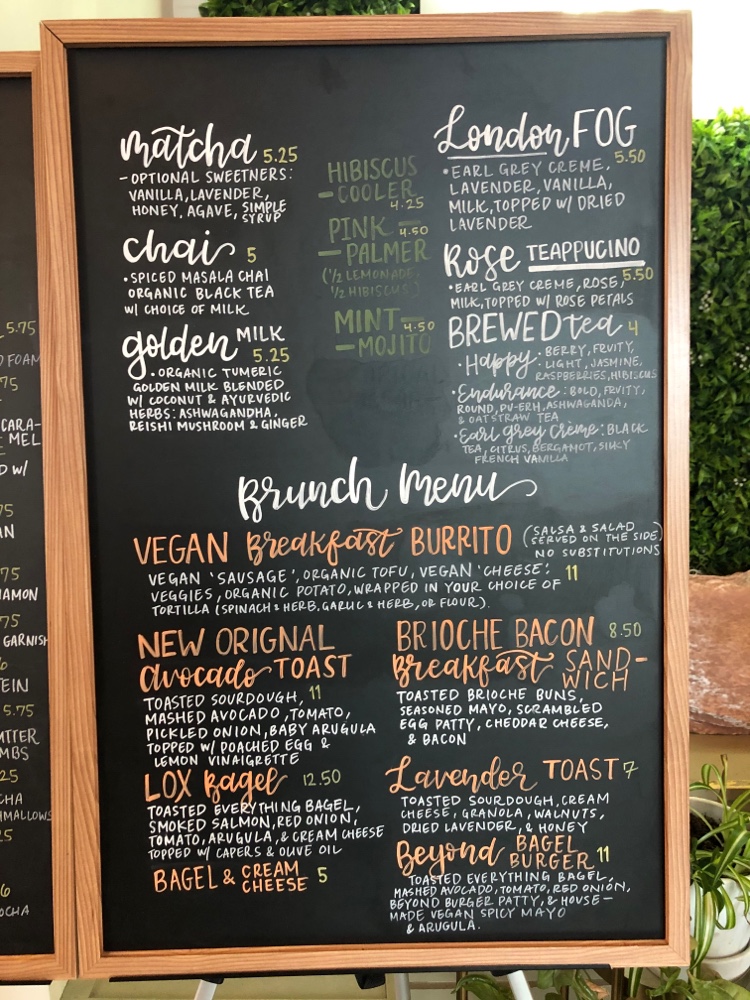 matcha 5.25
- OPTIONAL SWEETNERS:
VANILLA, LAVENDER,
HONEY, AGAVE, SIMPLE
SYRUP
chai 5
• SPICED MASALA CHAI
ORGANIC BLACK TEA
W/ CHOICE OF MILK
golden MILK
5.25
• ORGANIC TUMERIC
GOLDEN MILK BLENDED
W/ COCONUT & AYURVEDIC
HERBS: ASHWAGANDHA,
REISHI MUSHROOM & GINGER
HIBISCUS
- COOLER
4.25
PINK —
4.50
- PALMER
(1/2 LEMONADE,
1/2 HIBISCUS)
MINT —
4.50
- MOJITO
London FOG
5.50
• EARL GREY CREME,
LAVENDER, VANILLA,
MILK, TOPPED W/ DRIED
LAVENDER
Rose TEAPPUCINO
5.50
• EARL GREY CREME, ROSE,
MILK, TOPPED W/ ROSE PETALS
BREWED tea 4
• Happy: BERRY, FRUITY,
LIGHT, JASMINE,
RASPBERRIES, HIBISCUS
• Endurance: BOLD, FRUITY,
ROUND, PU-ERH, ASHWAGANDA,
& OATSTRAW TEA
• Earl grey Crème: BLACK
TEA, CITRUS, BERGAMOT, SILKY
FRENCH VANILLA
Brunch Menu
VEGAN Breakfast BURRITO (SALSA & SALAD
SERVED ON THE SIDE)
NO SUBSTITUTIONS
VEGAN 'SAUSAGE', ORGANIC TOFU, VEGAN 'CHEESE', 11
VEGGIES, ORGANIC POTATO, WRAPPED IN YOUR CHOICE OF
TORTILLA (SPINACH & HERB, GARLIC & HERB, OR FLOUR).
NEW ORIGNAL
avocado TOAST
TOASTED SOURDOUGH, 11
MASHED AVOCADO, TOMATO,
PICKLED ONION, BABY ARUGULA
TOPPED W/ POACHED EGG &
LEMON VINAIGRETTE
BRIOCHE BACON 8.50
Breakfast SAND-
WICH
TOASTED BRIOCHE BUNS,
SEASONED MAYO, SCRAMBLED
EGG PATTY, CHEDDAR CHEESE,
& BACON
LOX Bagel 12.50
TOASTED EVERYTHING BAGEL,
SMOKED SALMON, RED ONION,
TOMATO, ARUGULA, & CREAM CHEESE
TOPPED W/ CAPERS & OLIVE OIL
BAGEL & CREAM
CHEESE 5
Lavender TOAST 7
TOASTED SOURDOUGH, CREAM
CHEESE, GRANOLA, WALNUTS,
DRIED LAVENDER, & HONEY
Beyond BAGEL
BURGER 11
TOASTED EVERYTHING BAGEL,
MASHED AVOCADO, TOMATO, RED ONION,
BEYOND BURGER PATTY, & HOUSE-
MADE VEGAN SPICY MAYO
& ARUGULA.
5.75
FOAM
75
CARA-
MEL
W/
75
75
GARNISH
5.75
25